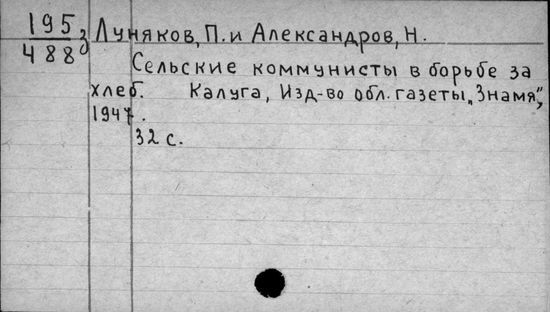 195
488
3 Луняков, П. и Александров, Н.
Сельские коммунисты в борьбе за
хлеб. Калуга, Изд-во обл. газеты „Знамя“,
1947.
32 с.